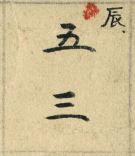 辰
五
三